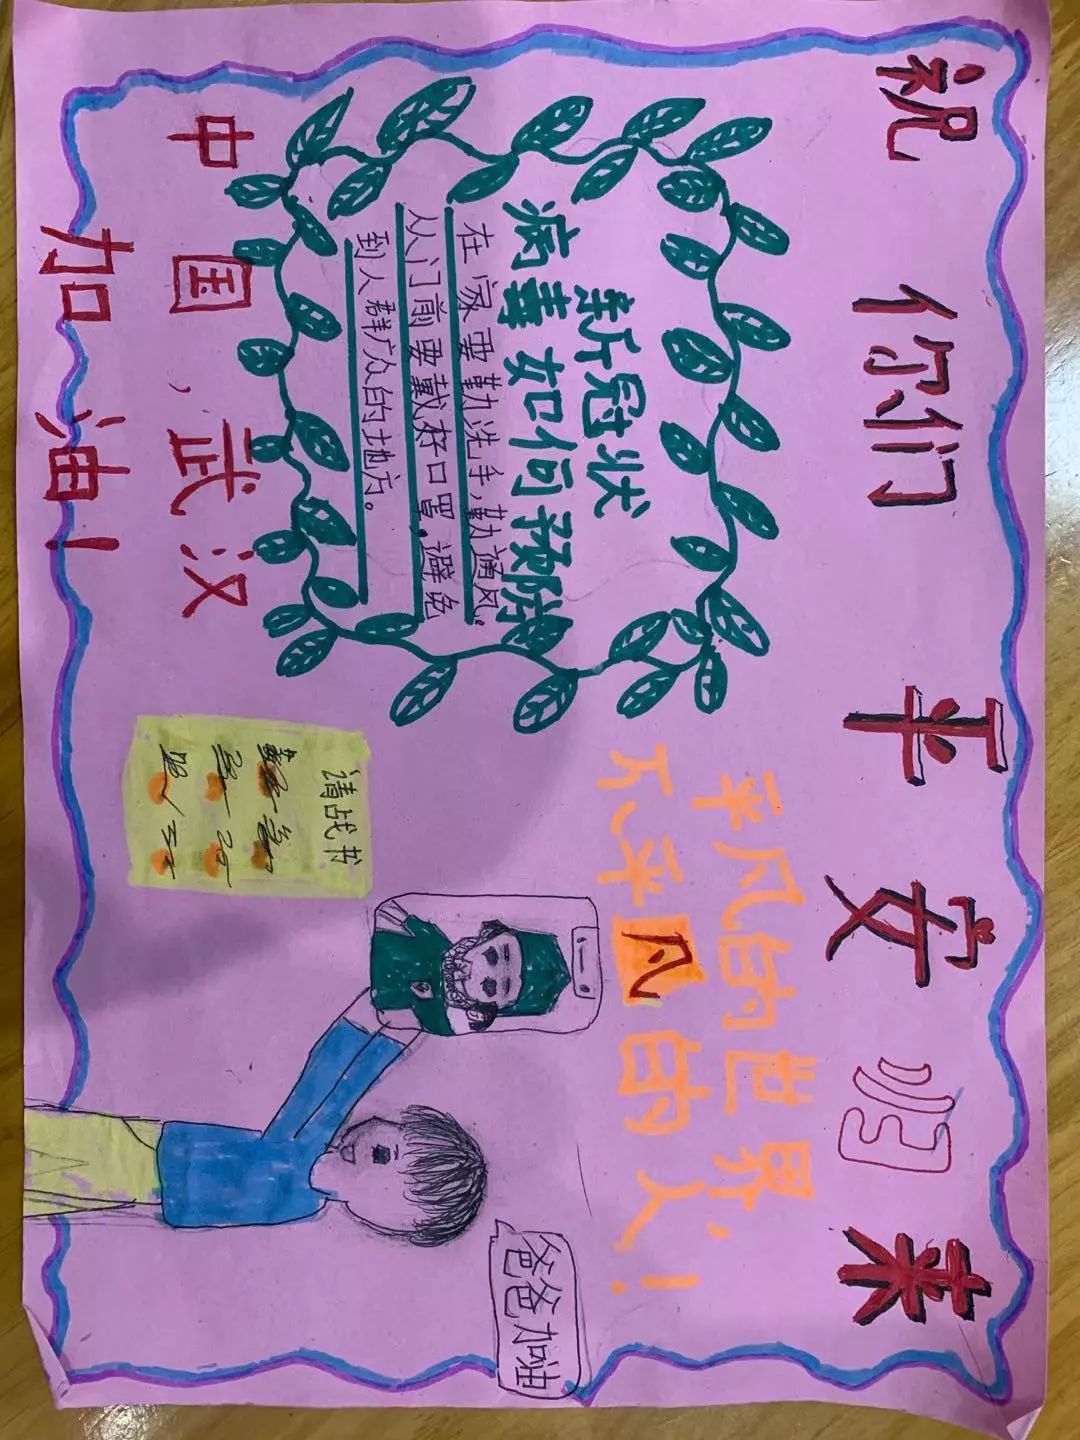 祝你们平安归来
新冠状
病毒如何预防
在家要勤洗手,勤通风。
从门前要戴好口罩,避免
到人群广众的土地方。
中国,武汉
加油!
平凡的世界,
不平凡的人!
请战书
爸爸加油